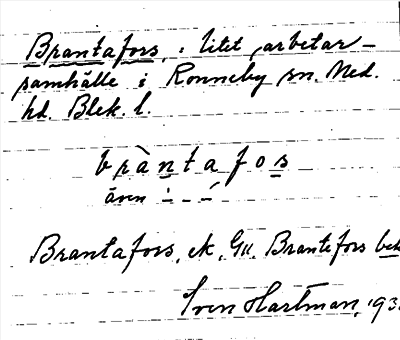 Brantafors, : litet arbetar-
samhälle i Ronneby sn. Med.
hd. Blek. l.
bràntafos
även
Brantafors, ek, Gu. Brantefors bek
Sven Hartman, 193